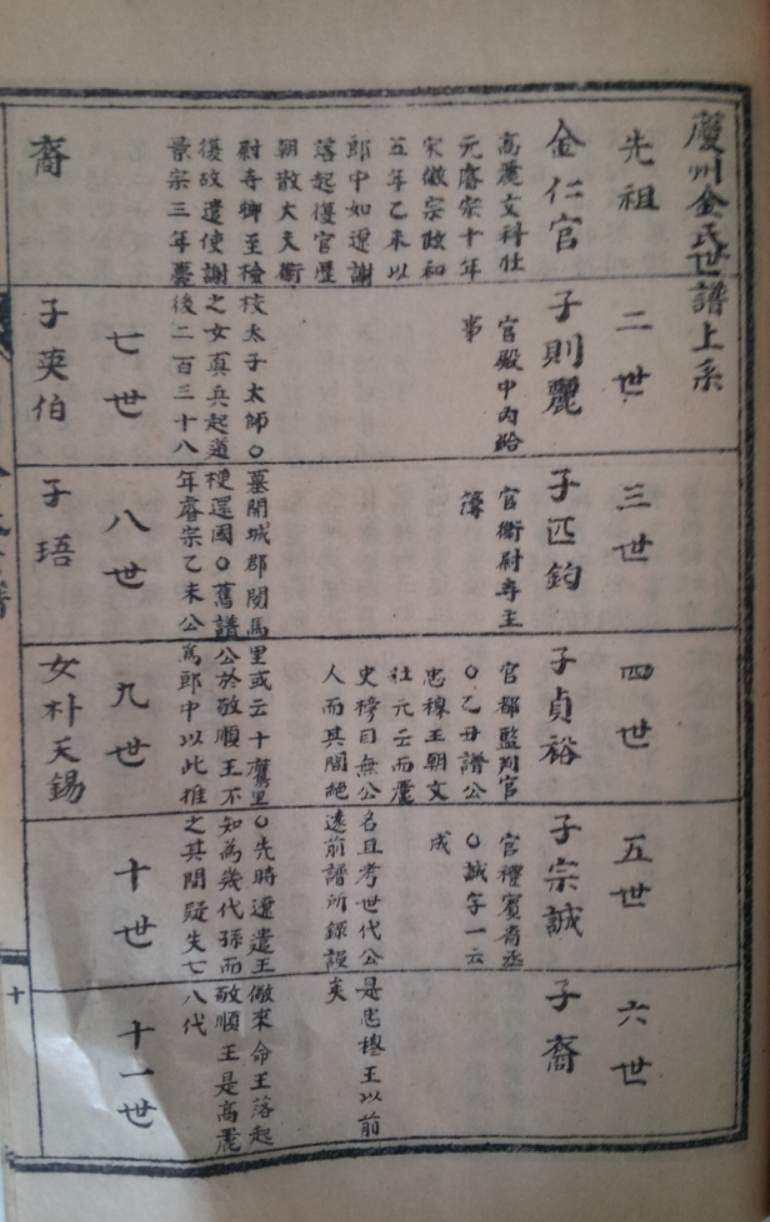 慶州金氏世譜上系
先祖 二世 三世 四世 五世 六世
金仁官 子則麗 子匹鈞 子貞裕 子宗誠 子裔
高麗文科壯 官殿中內給 官衛尉寺主 官都監判官 官禮賓寺丞
元睿宗十年 事 簿 ○乙丑譜公 ○誠字一云
宋徽宗政和 忠穆王朝文 成
五年乙未以 壯元云而麗
郎中如遼謝 史榜目無公名且考世代公是忠穆王以前
落起復官歷 人而其間絕遠前譜所錄誤矣
朝散大夫衛
尉寺卿至檢校太子太師○墓開城郡閱馬里或云十鷹里○先時遼遣王儆來命王落起
復故遣使謝之女真兵起道梗還國○舊譜公於敬順王不知為幾代孫而敬順王是高麗
景宗三年薨後二百三十八年睿宗乙未公爲郎中以此推之其間疑失七八代
七世 八世 九世 十世 十一世
裔 子英伯 子珸 女朴天錫
十